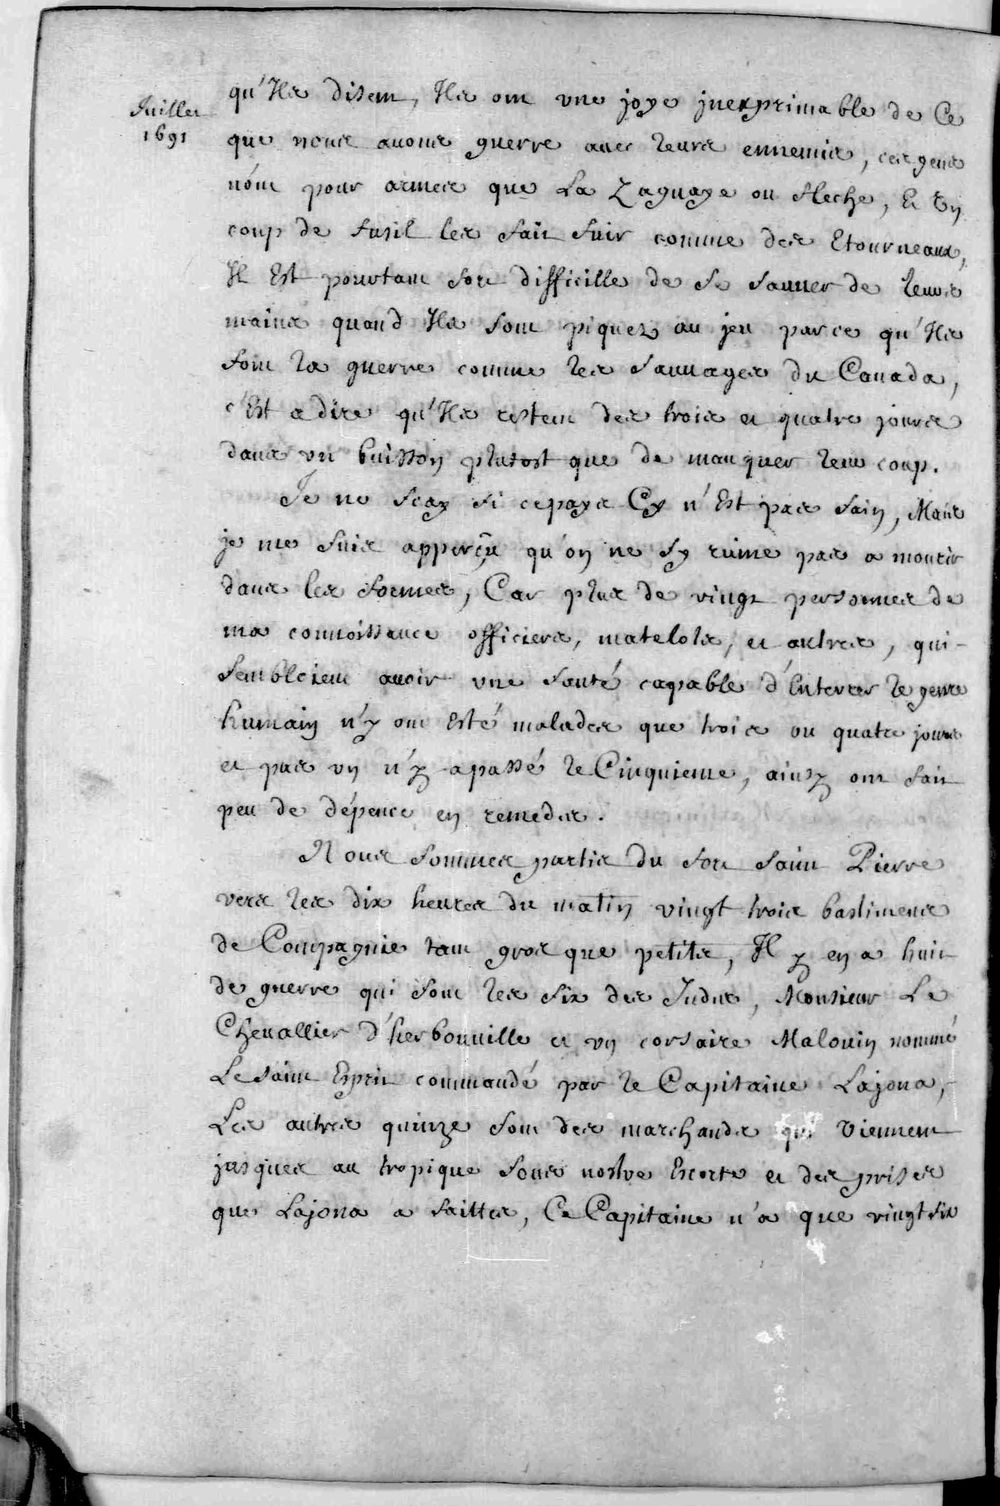 Juillet
1691
qu'Ils disent, Ils ont une joye inexprimable de Ce
que nous avons guerre avec leurs ennemis, ces gens
n'ont pour armes que La Zaguaye ou fleche, et Un
coup de fusil les fait fuir comme des Etourneaux,
Il Est pourtant fort difficille de se sauver de leurs
mains quand Ils sont piquez au jeu parce qu'Ils
font la guerre comme les sauvages du Canada,
c'Est a dire qu'Ils restent des trois et quatre jours
dans un buisson plutost que de manquer leur coup.
Je ne sçay si ce pays Cy n'Est pas sain, Mais
je me suis apperçeu qu'on ne s'y rüine pas a mourir
dans les formes, Car plus de vingt personnes de
ma connoissance officiers, matelots, et autres, qui
sembloient avoir une santé capable d'Enterrer le genre
humain n'y ont Esté malades que trois ou quatre jours
et pas un n'y a passé le Cinquieme, ainsy ont fait
peu de dépence en remedes.
Nous sommes partis du fort saint Pierre
vers les dix heures du matin vingt trois bastimens
de Compagnie tant gros que petits, Il y en a huit
de guerre qui sont les six des Indes, Monsieur Le
Chevallier d'herbouville et un corsaire Malouin nommé
Le saint Esprit commandé par le Capitaine Lajona,
Les autres quinze sont des marchands qui viennent
jusques au tropique sous nostre Escorte et des prises
que Lajona a faittes, Ce Capitaine n'a que vingt six